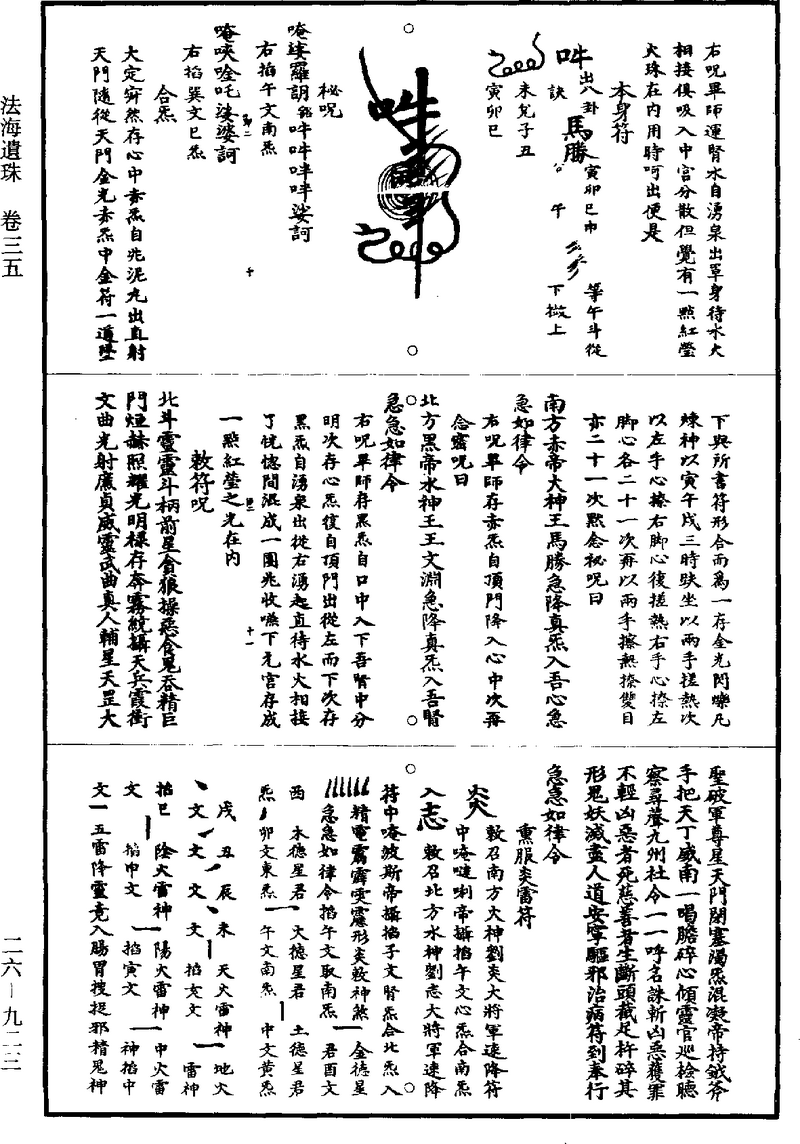 法海遺珠 卷三五
二六—九二三
右呪畢師運腎水自湧泉出罩身待水火
相接俱吸入中宮分散但覺有一點紅瑩
火珠在内用時呵出便是
本身符
吽
出八卦
訣
馬勝
寅卯巳申
午
等午斗從
下撒上
未兌子丑
寅卯巳
秘呪
唵婆羅訶
吽吽吽吽娑訶
右掐午文南炁
唵唊唫吒娑婆訶
右掐巽文巳炁
合炁
大定寂然存心中赤炁自兆泥丸出直射
天門隨從天門金光赤炁中金符一道墜
下與所書符形合而爲一存金光閃爍凡
煉神以寅午戌三時趺坐以兩手搓熱次
以左手心擦右脚心復搓熱右手心擦左
脚心各二十一次再以兩手擦熱擦雙目
亦二十一次默念秘呪曰
南方赤帝大神王馬勝急降真炁入吾心急
急如律令
右呪畢師存赤炁自頂門降入心中次再
念密呪曰
北方黑帝水神王王文淵急降真炁入吾腎
急急如律令
右呪畢師存黑炁自口中入下吾腎中分
明次存心炁復自頂門出從左而下次存
黑炁自湧泉出從右湧起直待水火相接
了恍惚間混成一團兆收嚥下元宮存成
一點紅瑩之光在内
敕符呪
北斗靈靈斗柄前星貪狼操惡食鬼吞精巨
門烜赫照耀光明祿存奔霧統攝天兵霞衝
文曲光射廉貞威靈武曲真人輔星天罡大
聖破軍尊星天門閉塞陽炁混凝帝持鉞斧
手把天丁威南一喝膽碎心傾靈官巡檢聽
察尋聲九州社令一一呼名誅斬凶惡獲罪
不輕凶惡者死慈善者生斷頭截足杵碎其
形鬼妖滅盡人道安寧驅邪治病符到奉行
急急如律令
熏服炎雷符
炎
敕召南方火神劉炎大將軍速降符
中唵噠唎帝攝掐午文心炁合南炁
入志
敕召北方水神劉志大將軍速降
符中唵波斯帝攝掐子文腎炁合北炁入
精電靐霹霙靇形炎敕神煞
金德星
急急如律令掐午文取南炁
君酉文
西
木德星君
火德星君
土德星君
炁
卯文東炁
午文南炁
中文黄炁
戌丑辰未
天火雷神
地火
文文文文
掐亥文
雷神
掐巳
陰火雷神
陽火雷神
中火雷
文
掐申文
掐寅文
神掐中
文一五雷降靈竟入腸胃搜捉邪精鬼神
十
十一